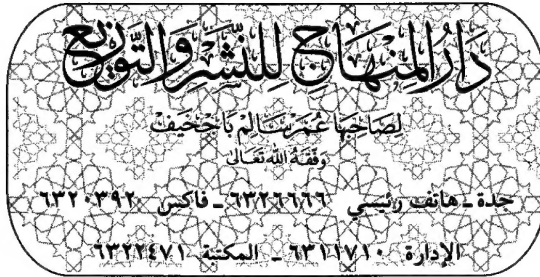 دَارُ المِنْهَاجِ لِلنَّشْرِ وَالتَّوْزِيعِ
لِصَاحِبِهَا عُمَر سَالِم بَاجْخَيْف
وَفَّقَهُ اللهُ تَعَالَى
جدة - هاتف رئيسي ٦٣٢٦٦٦٦ - فاكس ٦٣٢٠٣٩٢
الإدارة ٦٣١١٧١٠ - المكتبة ٦٣٢٢٤٧١